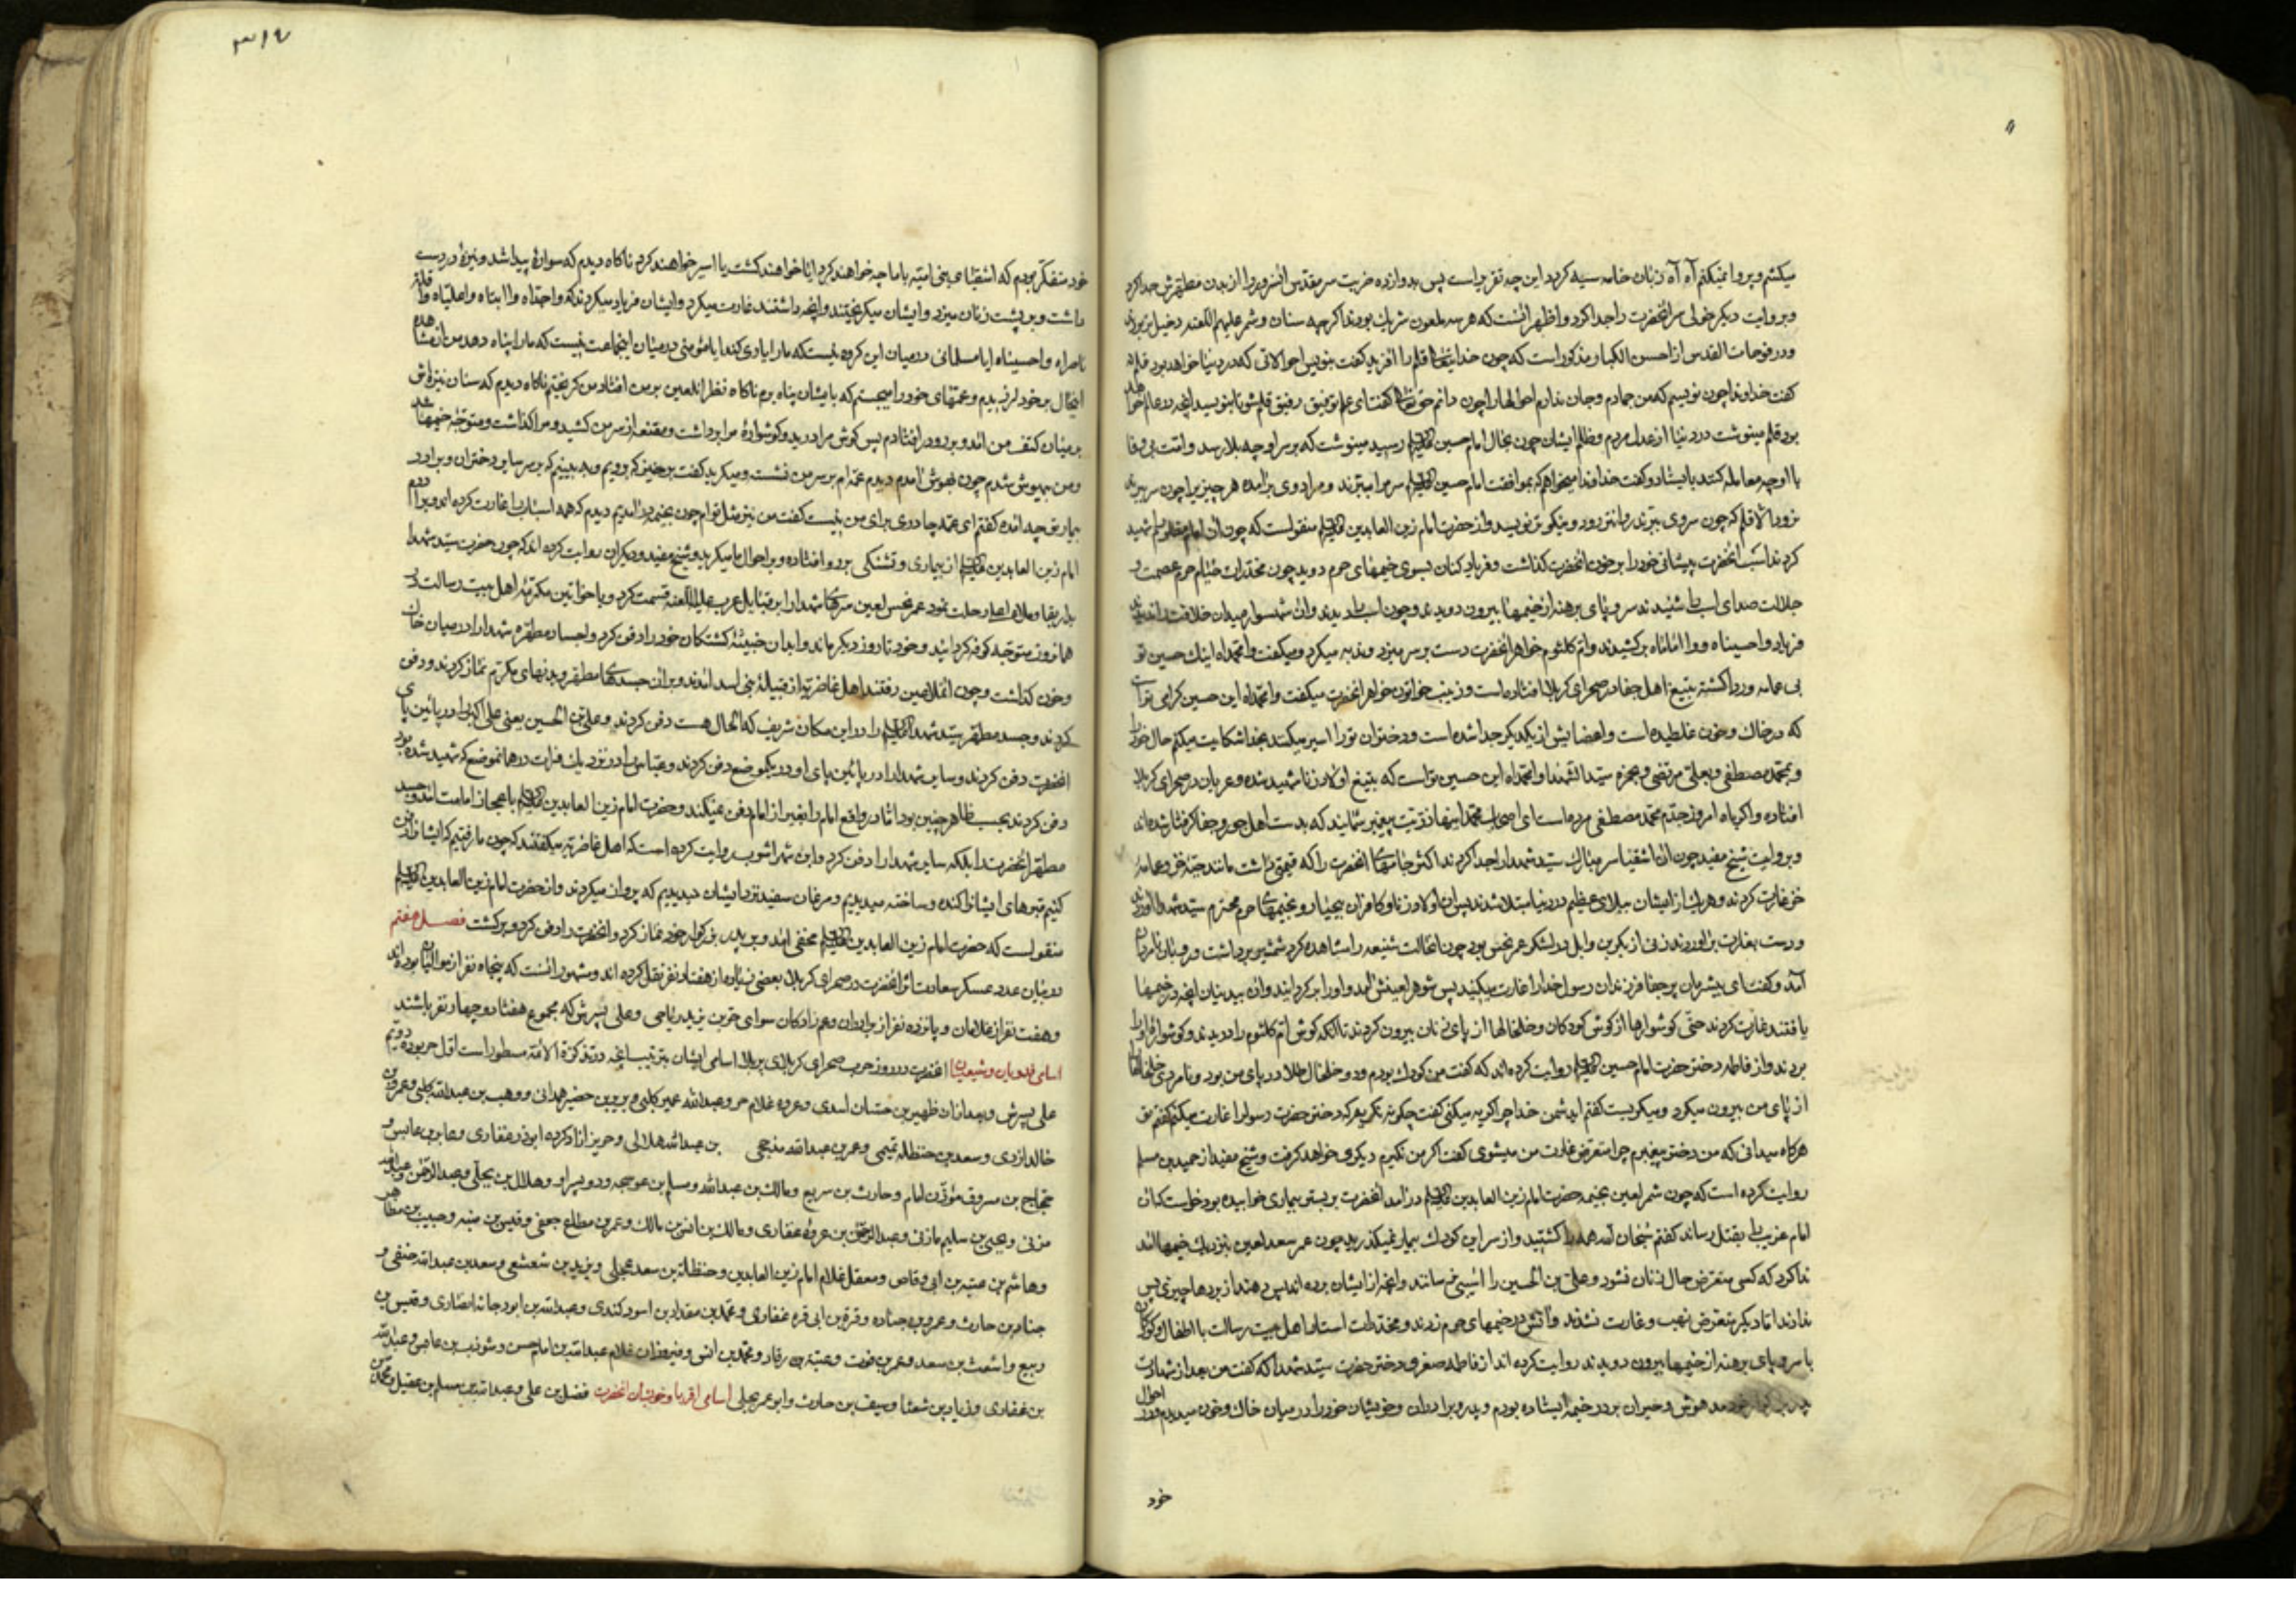 میکشم و پروا نمیکنم آه آه زبان خامه سیه کردد این چه تقریر است پس بدوازده ضربت سر مقدس انسرور را از بدن مطهرش جدا کرد
و بروایت دیکر خولی سر انحضرت را جدا کرد و اظهر انست که هر سه ملعون شریك بودند اکرچه سنان و شمر علیهم اللعنه دخیل تر بودند
و در فوحات القدس از احسن الکبار مذکور است که چون خدایتعالی قلم را افرید کفت بنویس احوالاتی که در دنیا خواهد بود قلم
کفت خداوندا چون نویسم که من جمادم و جان ندارم احوالها را چون دانم حق تعالی کفت ای علم توفیق رفیق قلم شو تا بنویسد انچه در عالم خواهد
بود قلم مینوشت در دنیا از عدل مردم و ظلم ایشان چون بحال امام حسین علیه السلم رسید مینوشت که بر سر او چه بلا رسد و امت بی وفا
با او چه معامله کنند بایستاد و کفت خداوندا میخواهم که بموافقت امام حسین علیه السلم سر مرا ببرند و مراد وی برامده هر چیز یرا چون سر ببرند
نرود الا قلم که چون سر وی ببرند روانتر رود و نیکوتر نویسد و از حضرت امام زین العابدین علیه السلم منقولست که چون ان امام مظلوم را شهید
کردند اسب انحضرت پیشانی خود را بر خون انحضرت کذاشت و فریاد کنان بسوی خیمهای حرم دوید چون مخدرات خیام حرم عصمت و
جلالت صدای اسب را شنیدند سر و پای برهنه از خیمها بیرون دویدند و چون اسب را دیدند و ان شهسوار میدان خلافت را ندیدند
فریاد وا حسیناه و وا اماماه برکشیدند و ام کلثوم خواهر انحضرت دست بر سر میزد و ندبه میکرد و میکفت وا محمداه اینك حسین تو
بی عمامه و ردا کشته بتیغ اهل جفا در صحرای کربلا افتاده است و زینب خواتون خواهر انحضرت میکفت وا محمداه این حسین کرامی تو است
که در خاك و خون غلطیده است و اعضایش از یکدیکر جدا شده است و دختران تو را اسیر میکنند بخدا شکایت میکنم حال خود را
و بمحمد مصطفی و بعلی مرتضی و بحمزه سید الشهدا وا محمداه این حسین تو است که بتیغ اولاد زنا شهید شده و عریان در صحرای کربلا
افتاده واکرباه امروز جدم محمد مصطفی مرده است ای اصحاب محمد اینها ذریت پیغمبر شمایند که بدست اهل جور و جفا کرفتار شده اند
و بروایت شیخ مفید چون ان اشقیا سر مبارك سید شهدا را جدا کردند اکثر جامهای انحضرت را که قیمتی داشت مانند جبه خز و عمامه
خز غارت کردند و هر یك از ایشان ببلای عظیم در دنیا مبتلا شدند پس ان اولاد زنا و کافران بیحیا رو بخیمهای حرم محترم سید شهدا اوردند
و دست بغارت براوردند زنی از بکر بن وایل در لشکر عمر نحس بود چون انحالت شنیعه را مشاهده کرد شمشیر برداشت و رو بان نامردان
آمد و کفت ای بیشرمان پر جفا فرزندان رسول خدا را غارت میکنید پس شوهر لعینش امد و او را برکردانید و ان بیدینان انچه در خیمها
یافتند غارت کردند حتی کوشوارها از کوش کودکان و خلخالها از پای زنان بیرون کردند تا انکه کوش ام کلثوم را دریدند و کوشواره او را
بردند و از فاطمه دختر حضرت امام حسین علیه السلم روایت کرده اند که کفت من کودك بودم و دو خلخال طلا در پای من بود و نامردی خلخالها را
از پای من بیرون میکرد و میکریست کفتم ایدشمن خدا چرا کریه میکنی کفت چکونه نکریم که دختر حضرت رسول را غارت میکنم کفتم تو
هرکاه میدانی که من دختر پیغمبرم چرا متعرض غارت من میشوی کفت اکر من نکیرم دیکری خواهد کرفت و شیخ مفید از حمید بن مسلم
روایت کرده است که چون شمر لعین بخیمه حضرت امام زین العابدین علیه السلم درامد انحضرت بر بستر بیماری خوابیده بود خواست که ان
امام غریب را بقتل رساند کفتم سبحان الله همه را کشتید و از سر این کودك بیمار نمیکذرید چون عمر سعد لعین بنزدیك خیمها امد
ندا کرد که کسی متعرض حال زنان نشود و علی بن الحسین را اسیبی نرسانند و انچه از ایشان برده اند پس دهند از بردها چیزی پس
ندادند اما دیکر متعرض نهب و غارت نشدند و اتش در خیمهای حرم زدند و مخدرات استار اهل بیت رسالت با اطفال و کودکان
با سر و پای برهنه از خیمها بیرون دویدند روایت کرده اند از فاطمه صغری دختر حضرت سید شهدا که کفت من بعد از شهادت
پدر بزرکوار خود مدهوش و حیران بر در خیمه ایستاده بودم و پدر و برادران و خویشان خود را در میان خاك و خون میدیدم و در احوال
خود
۳۱۴
خود متفکر بودم که اشقیای بنی امیه با ما چه خواهند کرد ایا خواهند کشت یا اسیر خواهند کرد ناکاه دیدم که سواره پیدا شد و نیزه در دست
داشت و بر پشت زنان میزد و ایشان میکریختند و انچه داشتند غارت میکرد و ایشان فریاد میکردند که وا جداه وا ابتاه وا علیاه وا قلة
ناصراه وا حسیناه ایا مسلمانی در میان این کروه نیست که ما را یاری کند ایا مؤمنی در میان اینجماعت نیست که ما را پناه دهد من از مشاهده
اینحال بر خود لرزیدم و عمتهای خود را میجستم که بایشان پناه برم ناکاه نظر انلعین بر من افتاد من کریختم ناکاه دیدم که سنان نیزه اش
بر میان کتف من امد و برو در افتادم پس کوش مرا درید و کوشواره مرا برداشت و مقنعه از سر من کشید و مرا کذاشت و متوجه خیمها شد
و من بیهوش شدم چون بهوش امدم دیدم عمه ام بر سر من نشسته و میکرید کفت برخیز که برویم و ببینیم که بر سر سایر دختران و برادر
بیمار تو چه امده کفتم ای عمه چادری برای من نیست کفت من نیز مثل توام چون بخیمه درامدیم دیدم که همه اسباب را غارت کرده اند و برادرم
امام زین العابدین علیه السلم از بیماری و تشنکی برو افتاده و بر احوال ما میکرید و شیخ مفید و دیکران روایت کرده اند که چون حضرت سید شهدا
بدار بقا و ملاء اعلی رحلت نمود عمر نحس لعین سرهای شهدا را بر قبایل عرب علیه اللعنه قسمت کرد و با خواتین مکرمه اهل بیت رسالت در
همانروز متوجه کوفه کردانید و خود تا روز دیکر ماند و ابدان خبیثه کشتکان خود را دفن کرد و اجساد مطهره شهدا را در میان خاك
و خون کذاشت و چون انملاعین رفتند اهل غاضریه از قبیله بنی اسد امدند و بر ان جسدهای مطهر و بدنهای مکرم نماز کردند و دفن
کردند و جسد مطهر سید شهدا علیه السلم را در این مکان شریف که الحال هست دفن کردند و علی بن الحسین یعنی علی اکبر را در پائین پای
انحضرت دفن کردند و سایر شهدا را در پائین پای او در یکموضع دفن کردند و عباس را در نزدیك فرات در همانموضع که شهید شده بود
دفن کردند بحسب ظاهر چنین بود اما در واقع امام را بغیر از امام دفن نمیکند و حضرت امام زین العابدین علیه السلم باعجاز امامت امد و جسد
مطهر انحضرت را بلکه سایر شهدا را دفن کرد و ابن شهر اشوب روایت کرده است که اهل غاضریه میکفتند که چون ما رفتیم که ایشانرا دفن
کنیم قبرهای ایشانرا کنده و ساخته میدیدیم و مرغان سفید نزد ایشان میدیدیم که پرواز میکردند و از حضرت امام زین العابدین علیه السلم
منقولست که حضرت امام زین العابدین علیه السلم مخفی امد و بر پدر بزرکوار خود نماز کرد و انحضرت را دفن کرد و برکشت فصل هفتم
در بیان عدد عسکر سعادت اثر انحضرت در صحرای کربلا بعضی زیاده از هفتاد نفر نقل کرده اند و مشهور انست که پنجاه نفر از موالیان بوده اند
و هفت نفر از غلامان و پانزده نفر از برادران و عم زادکان سوای حر بن یزید ریاحی و علی پسرش که مجموع هفتاد و چهار نفر باشند
اسامی فدویان و شیعیان انحضرت در روز حرب صحرای کربلای پربلا اسامی ایشان بترتیب انچه در تذکرة الائمه مسطور است اول حر بوده دویم
علی پسرش و بعد ازان ظهیر بن حسان اسدی و عروه غلام حر و عبدالله عمیر کلبی و بریر بن حضیر همدانی و وهب بن عبدالله کلبی و عمرو بن
خالد ازدی و سعد بن حنظله تمیمی و عمر بن عبدالله مذحجی بن عبدالله هلالی و حریز ازاد کرده ابوذر غفاری و عابر بن عابس و
حجاج بن مسروق مؤذن امام و حارث بن سریع و مالك بن عبدالله و مسلم بن عوسجه و دو پسر او و هلال بن بجلی و عبدالرحمن و عبدالله
مزنی و یحیی بن سلیم مازنی و عبدالرحمن بن عروه غفاری و مالك بن انس بن مالك و عمر بن مطاع جعفی و قیس بن منبه و حبیب بن مظاهر
و هاشم بن عتبه بن ابی وقاص و معقل غلام امام زین العابدین و حنظلة بن سعد عجلی و یزید بن شعشعی و سعد بن عبدالله حنفی و
جناده بن حارث و عمرو بن جناده و قرة بن ابی قره غفاری و محمد بن مقداد بن اسود کندی و عبدالله بن ابودجانه انصاری و قیس بن
ربیع و اشعث بن سعد و عمر بن قرت و عتبه بن رقاد و محمد بن انس و فیروزان غلام عبدالله بن امام حسن و شوذب بن عاص و عبدالله
بن غفاری و زیاد بن شعثا و سیف بن حارث و ابو عمر بجلی اسامی اقربا و خویشان انحضرت فضل بن علی و عبدالله بن مسلم بن عقیل و محمد بن